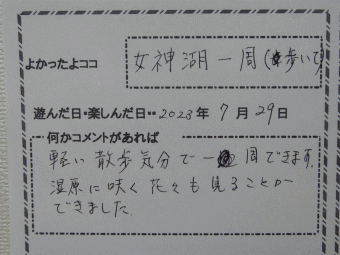 よかったよココ 女神湖一周(歩いて)
遊んだ日・楽しんだ日・・2023年 7月 29日
何かコメントがあれば
軽い散歩気分で一周できます。
湿原に咲く花々も見ることが
できました。